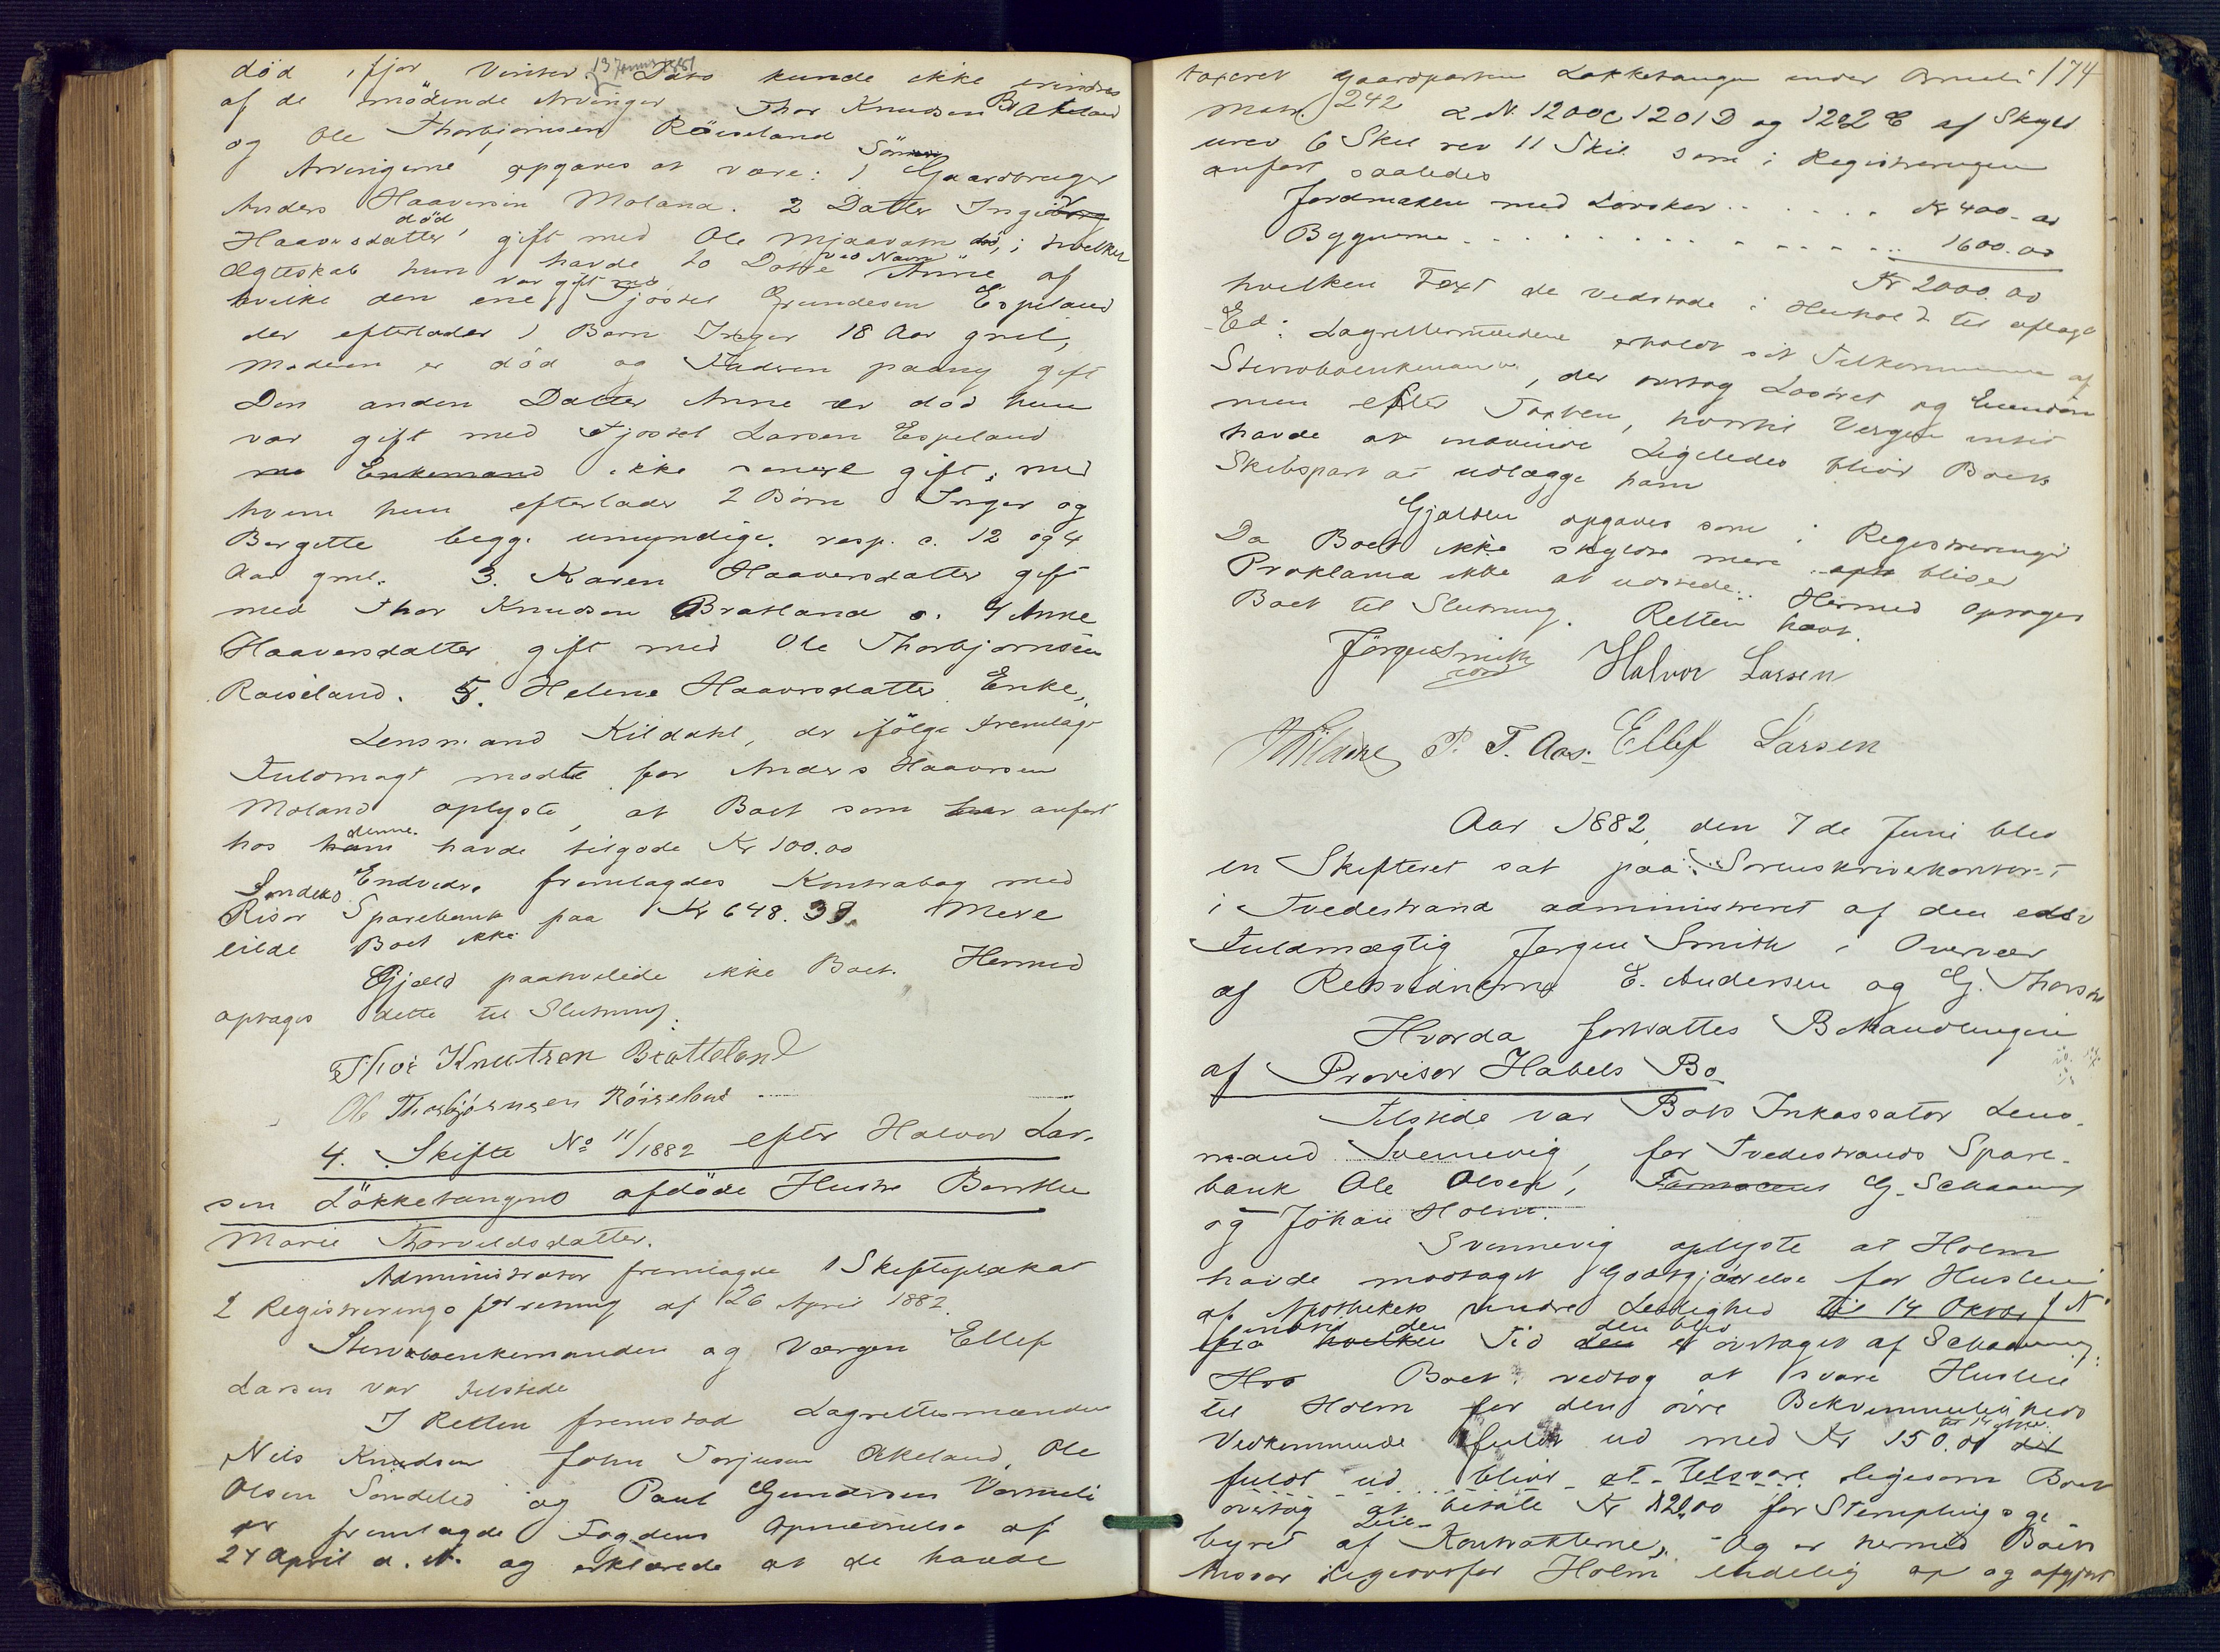 død i fjor Vinter. 13 Januar 1881 Dato kunde ikke erindres
af de mødende Arvinger Thor Knudsen Bratland
og Ole Thorbjørnsen Röiseland
Arvingerne opgaves at være: 1 Sön Gaardbruger
Anders Haaversen Moland. 2 Datter Ingeborg
Haaversdatter død, gift med Ole Mjaavatn død, i hvilket
Ægteskab hun havde to Døtre ved Navn Anne af
hvilke den ene var gift med Tjöstel Grundesen Espeland
der efterlader 1 Barn Inger 18 Aar gml,
Moderen er död og Faderen paany gift
Den anden Datter Anne er död hun
var gift med Tjöstel Larsen Espeland
nu Enkemand ikke senere gift, med
hvem hun efterlader 2 Börn Inger og
Bergette begge umyndige. resp. c. 12 og 4
Aar gml. 3. Karen Haaversdatter gift
med Thor Knudsen Bratland o. 4 Anne
Haaversdatter gift med Ole Thorbjörnsen
Röiseland. 5. Helene Haaversdatter Enke,
Lensmand Kildahl, der ifölge fremlagt
Fuldmagt mødte for Anders Haaversen
Moland oplyste, at Boet som her anfört
hos ham denne. havde tilgode Kr 100.00
Endvidere fremlagdes Kontrabog med
Söndeleds
Risör Sparebank paa Kr 648.38. Mere
eiede Boet ikke
Gjæld paahvilede ikke Boet. Hermed
optages dette til Slutning.
Thor Knutsen Bratteland
Ole Thorbjörnsen Röiseland
4. Skifte No 11/1882 efter Halvor Lar-
sen Lökketangens afdöde Hustru Berthe
Marie Thorvaldsdatter.
Administrator fremlagde 1 Skifteplakat
2 Registreringsforretning af 26 April 1882.
Stervboenkemanden og Værgen Ellef
Larsen var tilstede
I Retten fremstod Lagrettesmændene
Nils Knudsen John Torjusen Akeland, Ole
Olsen Söndeled og Paul Gundersen Varmeli
der fremlagde Fogdens Opnævnelse af
24 April d. A. og erklærede at de havde
174
taxeret Gaardparten Løkketangen under Arneli
Matr. 242 L N. 1200c 1201 D og 1202 E af Skyld
urev 6 Skil rev 11 Skil som i Registreringen
anført saaledes
Jordmaalen med Lørskov . . . . . . Kr 400-00
Bygnerne . . . . . . . . . . . 1600.00
Kr 2000.00
hvilken Taxt de vedstode i Henhold til aflagt
Ed. Lagrettesmændene erholdt sit Tilkommende af
Stervboenkemanden, der overtog Løsöret og Eiendom
men efter Taxten, hvortil Værgen intet
havde at indvende Ligeledes bliver Boets
Skibspart at udlægge ham
Gjælden opgaves som i Registreringen
Da Boet ikke skylder mere bliver
Proklama ikke at udstede. Hermed optages
Boet til Slutning. Retten hævt.
Jörgen Smith
const
Halvor Larsen
P. T. Aas. Ellef Larsen
Aar 1882 den 7de Juni blev
en Skifteret sat paa Sorenskriverkontoret
i Tvedestrand administreret af den edsv
Fuldmægtig Jørgen Smith i Overvær
af Retsvidnerne E. Andersen og G. Thorsen
Hvorda fortsattes Behandlingen
af Provisor Habels Bo
Tilstede var Boets Inkassator Lens-
mand Svennevig, for Tvedestrands Spare-
bank Ole Olsen, Farmaceut G. Schaaning
og Johan Holm.
Svennevig oplyste at Holm
havde modtaget Godtgjørelse for Husleie
af Apotheket under Ledighed til 14 Oktbr f A
fra hvilken indtil den Tid den den blev er overtaget af Schaaning.
Hvo Boet vedtog at svare Husleie
til Holm for den øvre Bekvemmeligheds
Vedkommende fuldt ud med Kr 150.00 det
fuldt ud bliver at tilsvare ligesom Boet
overtog at betale Kr 12,00 for Stemplingsge-
byret af Leie-Kontrakterne. Og er hermed Boets
Ansvar ligeoverfor Holm endelig op og afgjort